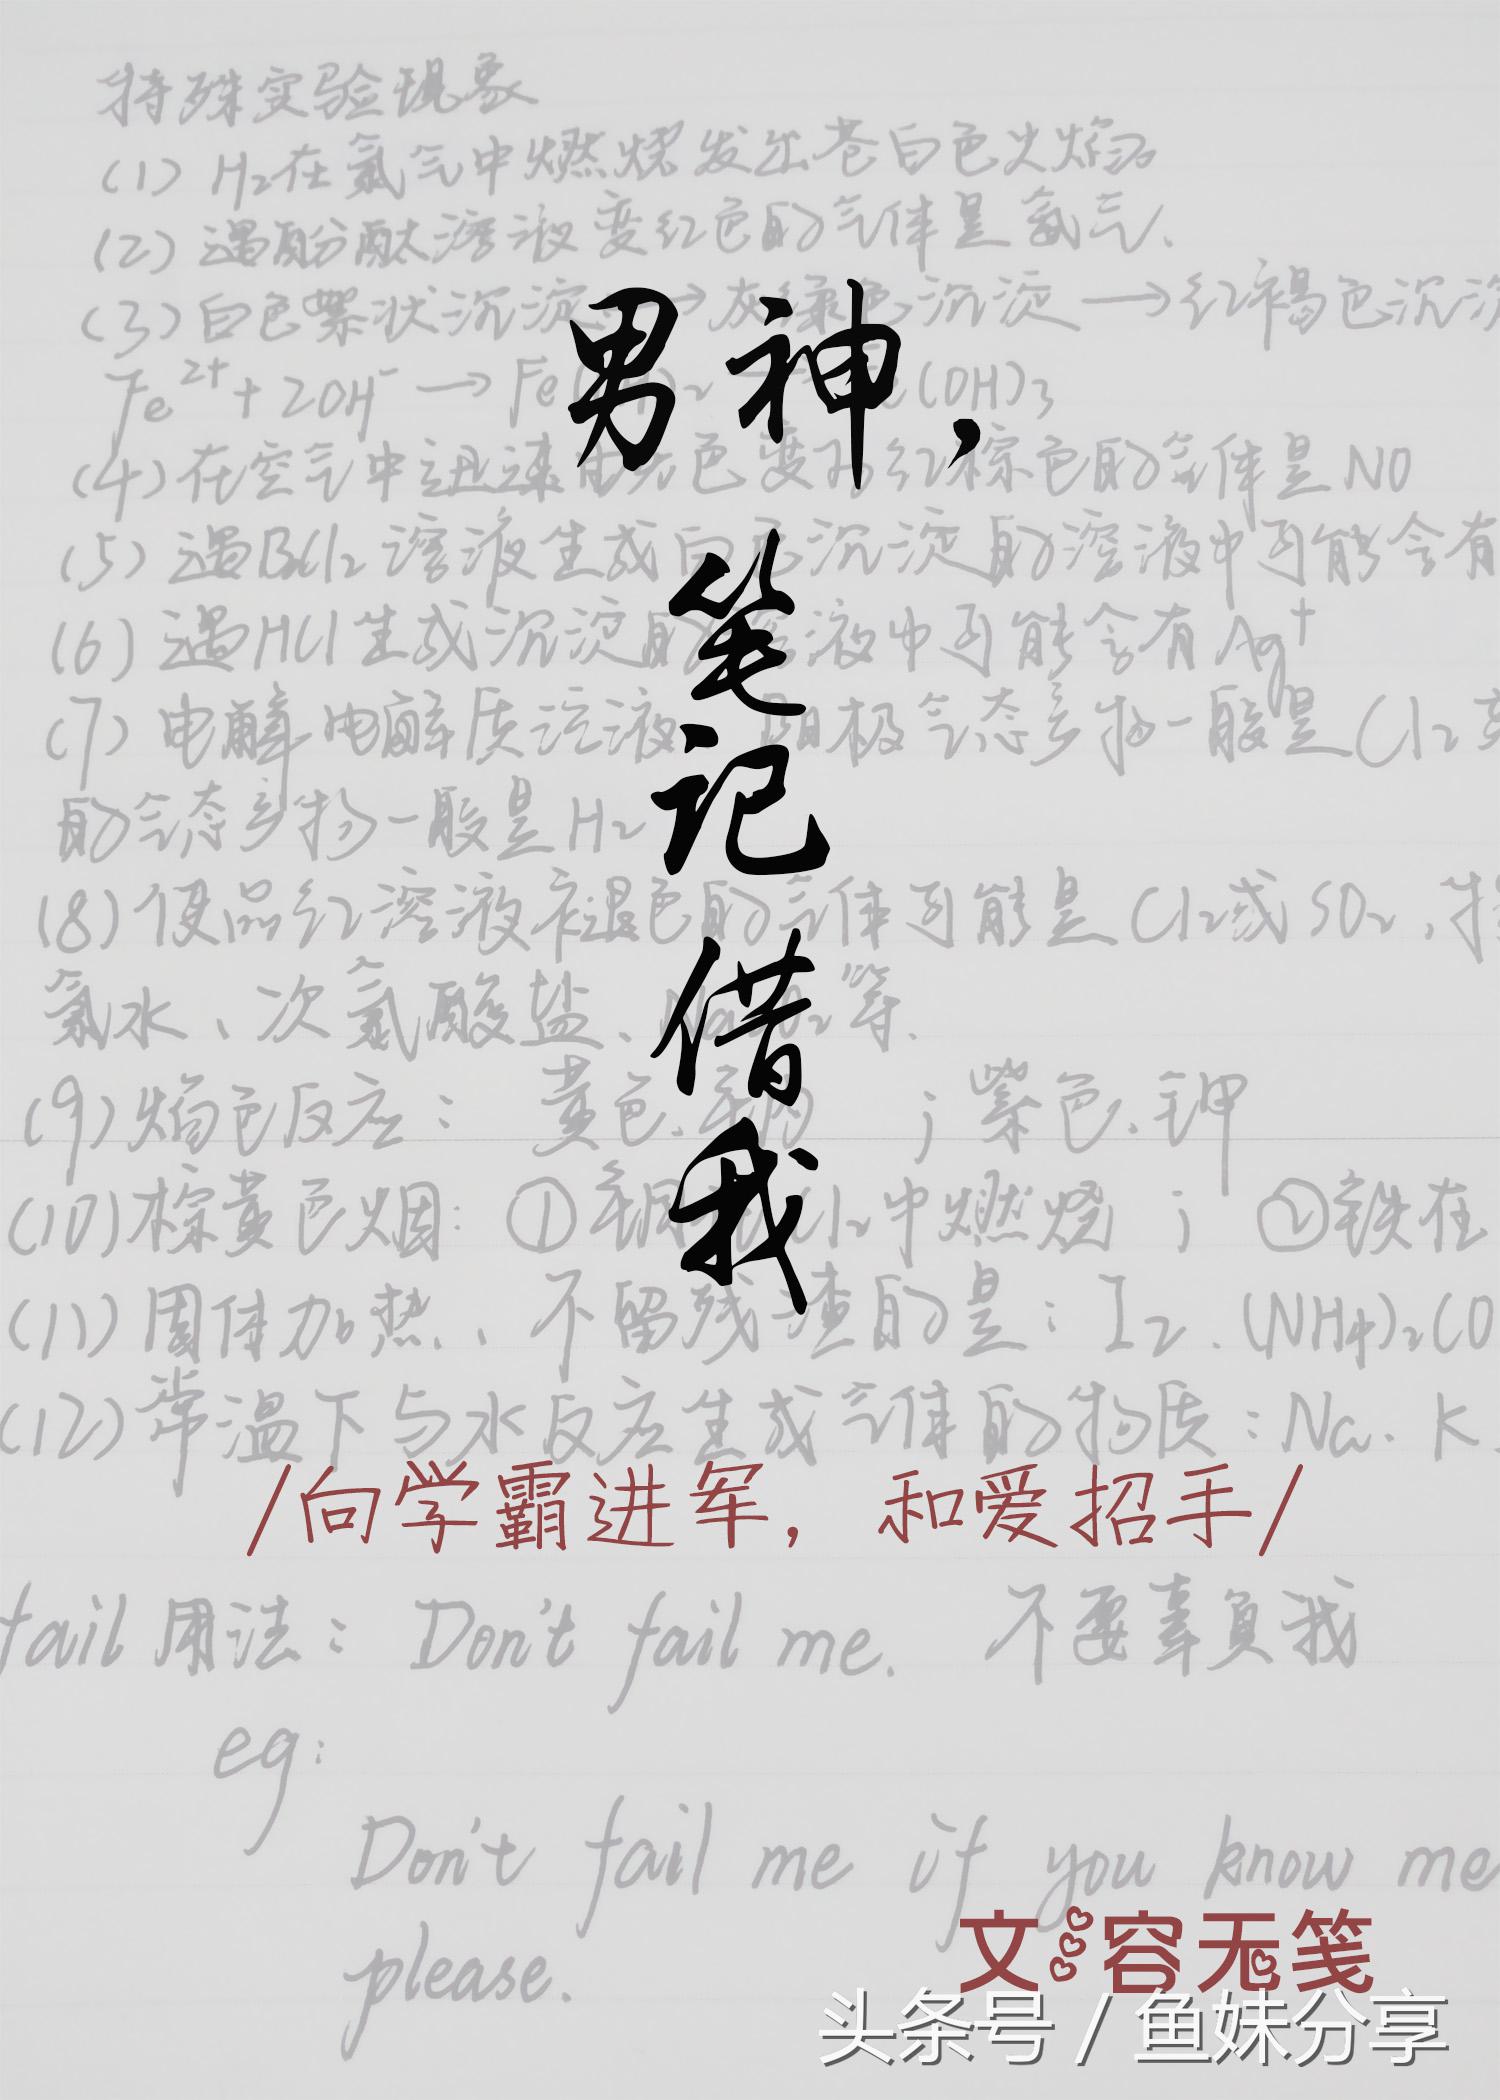 特殊实验现象
(1) H₂在氯气中燃烧发出苍白色火焰
(2) 遇酚酞溶液变红色的气体是氨气.
(3) 白色絮状沉淀→灰绿色沉淀→红褐色沉淀
Fe²⁺+2OH⁻→Fe(OH)₂ (OH)₃
(4) 在空气中迅速由无色变为红棕色的气体是NO
(5) 遇BaCl₂溶液生成白色沉淀的溶液中可能含有
(6) 遇HCl生成沉淀的溶液中可能含有Ag⁺
(7) 电解电解质溶液 阳极气态产物一般是Cl₂
的气态产物一般是H₂
(8) 使品红溶液褪色的气体可能是Cl₂或SO₂,
氯水、次氯酸盐、Na₂O₂等.
(9) 焰色反应: 黄色.钠 ; 紫色.钾
(10) 棕黄色烟: ①铜在Cl₂中燃烧 ; ②铁在
(11) 固体加热、不留残渣的是: I₂.(NH₄)₂CO
(12) 常温下与水反应生成气体的物质: Na. K.
男神,
笔记
借我
/向学霸进军，和爱招手/
fail 用法: Don't fail me. 不要辜负我
eg:
Don't fail me if you know me
please.
文 容无笺
头条号 / 鱼妹分享